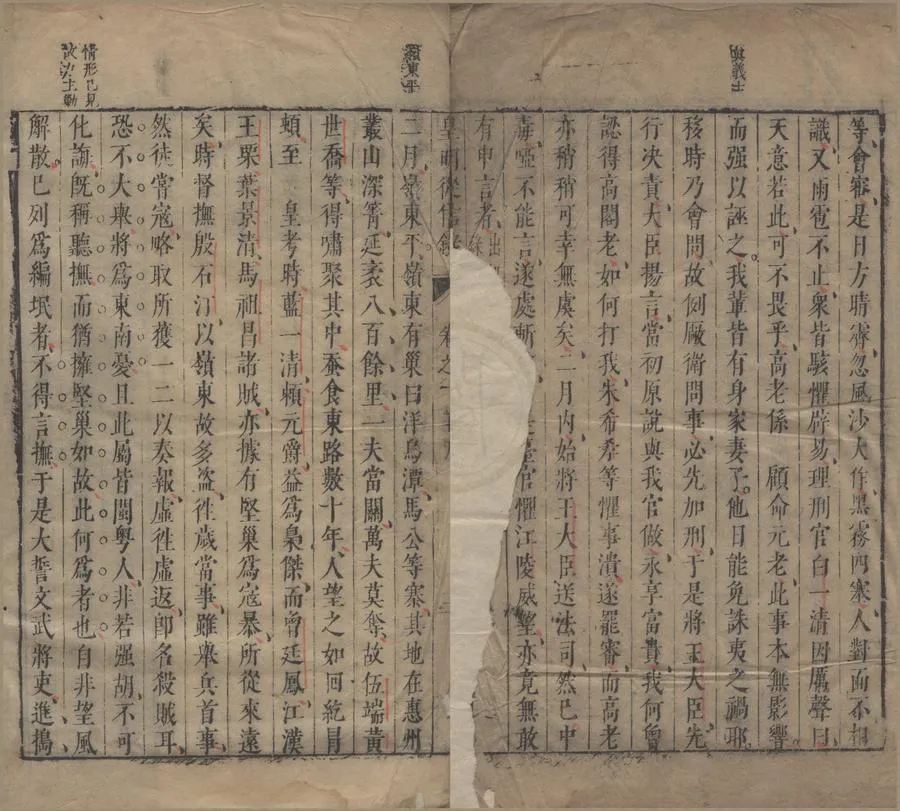 眞義士
等會審是日方晴霽忽風沙大作黑霧四塞人對面不相
識又雨雹不止衆皆駭懼辟易理刑官白一清因厲聲曰
天意若此可不畏乎高老係 顧命元老此事本無影響
而强以誣之我輩皆有身家妻子他日能免誅夷之禍耶
移時乃會問故例厰衛問事必先加刑于是將王大臣先
行決責大臣揚言當初原說與我官做永享富貴我何曾
認得高閣老如何打我朱希孝等懼事潰遂罷審而高老
亦稍稍可幸無虞矣二月內始將王大臣送法司然已中
毒啞不能言遂處斬 臺官懼江陵威望亦竟無敢
有申言者
皇明從信錄 卷之
嶺東平
二月嶺東平嶺東有巢曰洋烏潭馬公等寨其地在惠州
叢山深箐延袤八百餘里一夫當關萬夫莫奪故伍端黃
世喬等得嘯聚其中蚕食東路數十年人望之如回紇冒
頓至 皇考時藍一清賴元爵益爲梟傑而曾廷鳳江漢
王栗葉景清馬祖昌諸賊亦據有堅巢爲寇暴所從來遠
矣時督撫殷石汀以嶺東故多盜徃歲當事雖舉兵首事
然徒嘗寇略取所獲一二以奏報虛徃虛返卽名殺賊耳
恐不大舉將爲東南憂且此屬皆閩粤人非若强胡不可
化誨旣稱聽撫而猶擁堅巢如故此何爲者也自非望風
解散已列爲編氓者不得言撫于是大誓文武將吏進搗
情形已見
故力主勦